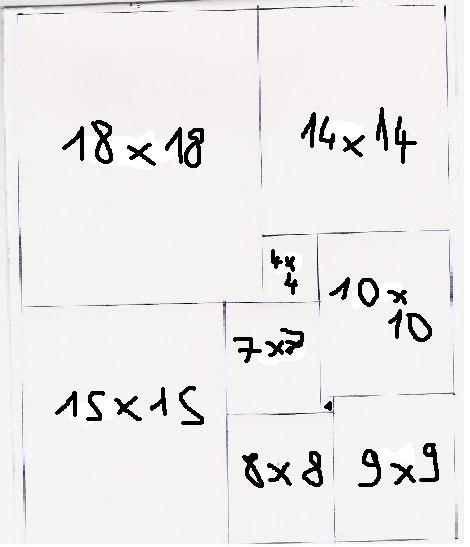 18 x 18
14 x 14
4x
4
10 x
10
7x7
15 x 15
8 x 8
9 x 9